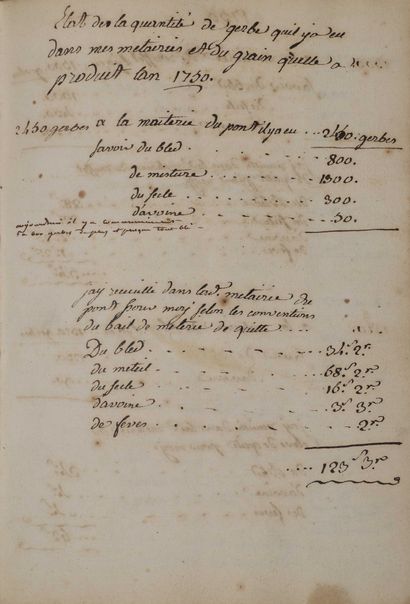 Etat de la quantité de gerbe quil ya eu
dans mes metairies et du grain quelle a
produit lan 1750.
2450 gerbes a la maiterie du pont il ya eu ... gerbes
savoir du bled 800.
de mixture 1300.
du seele 300.
davoine 50.
jay recueilli dans lad. metairie de
pont pour moy selon les conventions
du bail de meterie de quitte
Du bled 34s 2r.
du meteil 68s 2r.
du seele 16s 2r.
davoine 3s 3r.
de feves 2r.
123s 3r.